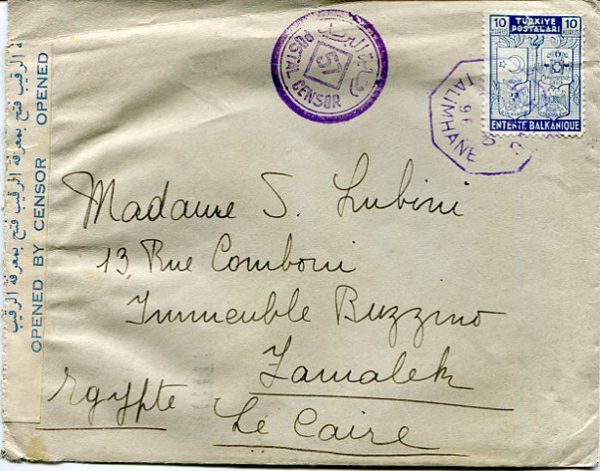 10 TÜRKİYE 10
POSTALARI
ENTENTE BALKANIQUE
TALIMHANE
57
POSTAL CENSOR
OPENED BY CENSOR OPENED
فتح بمعرفة الرقيب فتح بمعرفة الرقيب
Madame S. Lubini
13, Rue Comboni
Immeuble Buzzino
Zamalek
Egypte Le Caire